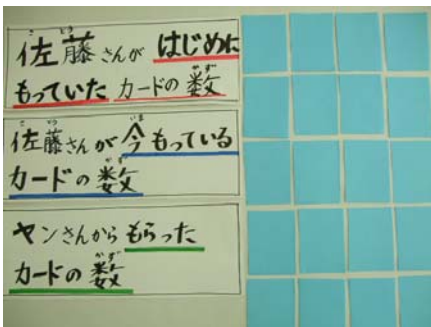 佐藤さんがはじめに
もっていたカードの数
佐藤さんが今もっている
カードの数
ヤンさんからもらった
カードの数